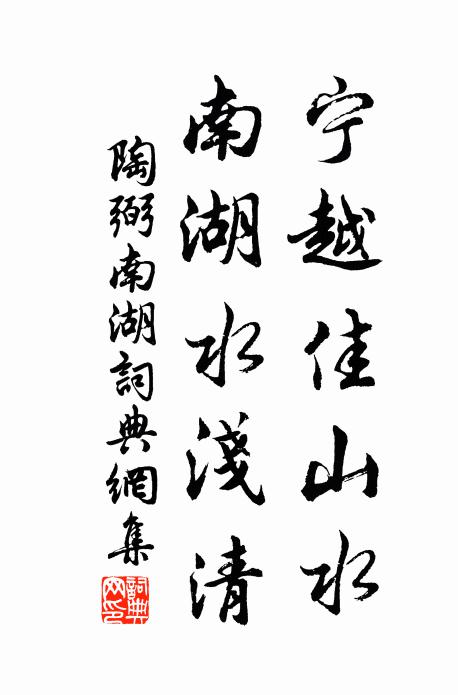 宁越佳山水
南湖水淺清
陶弼南湖詞典網集
詞典
网印